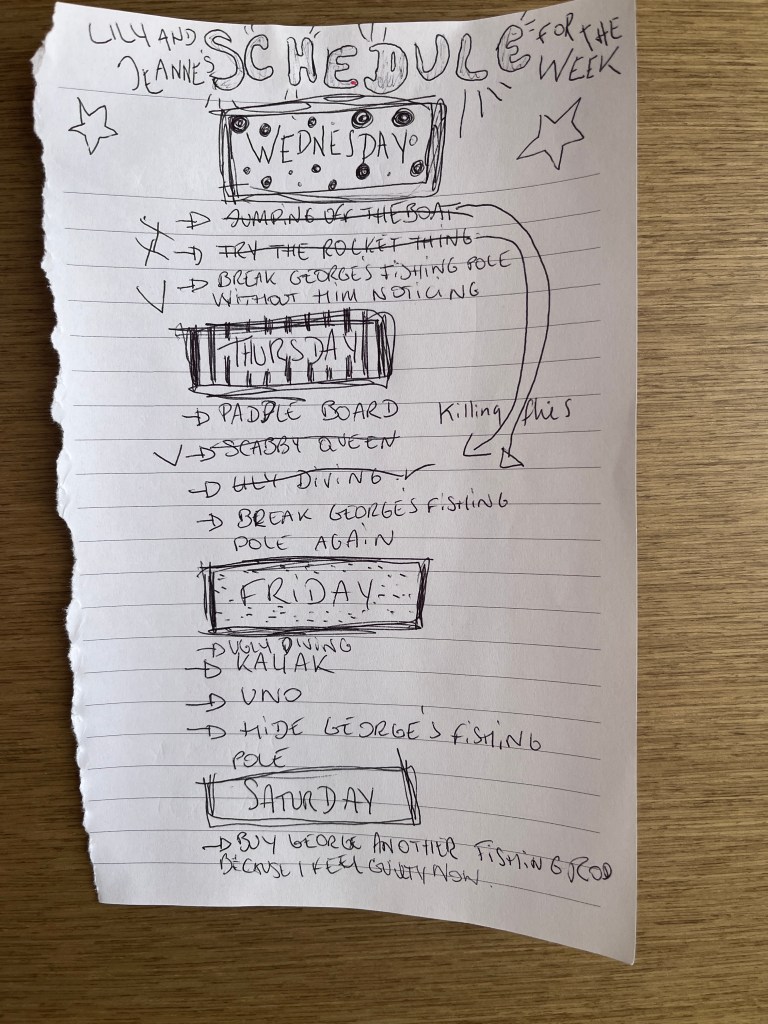 LILY AND JEANNE'S SCHEDULE FOR THE WEEK
WEDNESDAY
JUMPING OFF THE BOAT
TRY THE ROCKET THING
BREAK GEORGE'S FISHING POLE
WITHOUT HIM NOTICING
THURSDAY
PADDLE BOARD
Killing flies
SCABBY QUEEN
DIVING
BREAK GEORGE'S FISHING
POLE AGAIN
FRIDAY
UGLY DIVING
KAYAK
UNO
HIDE GEORGE'S FISHING
POLE
SATURDAY
BUY GEORGE ANOTHER FISHING ROD
BECAUSE I FEEL GUILTY NOW.